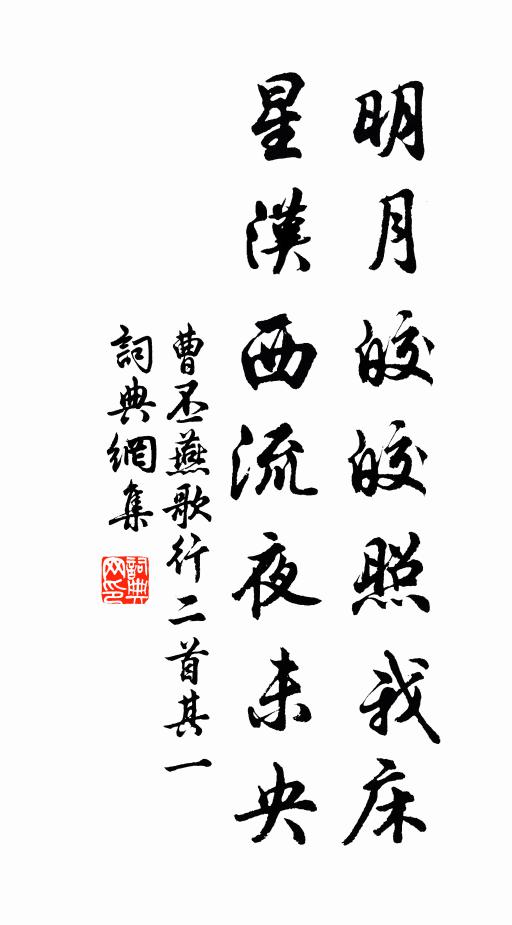 明月皎皎照我床
星漢西流夜未央
曹丕燕歌行二首其一
詞典網集
詞典网印